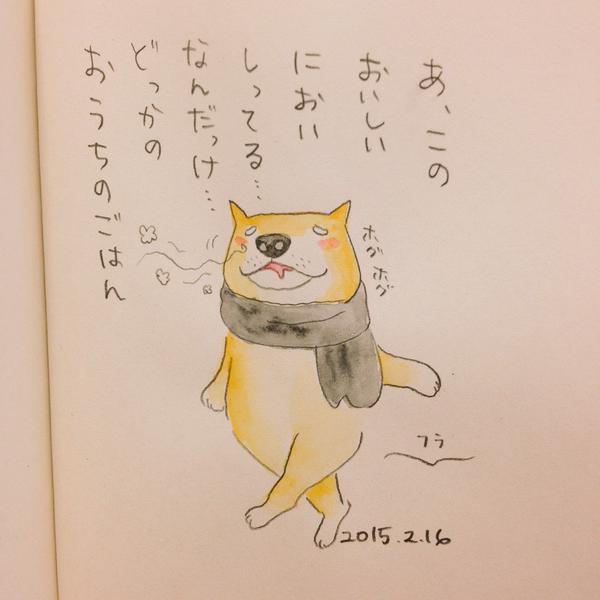 あ、この
おいしい
におい
しってる…
なんだっけ…
どっかの
おうちのごはん
ホグホグ
フラ
2015.2.16